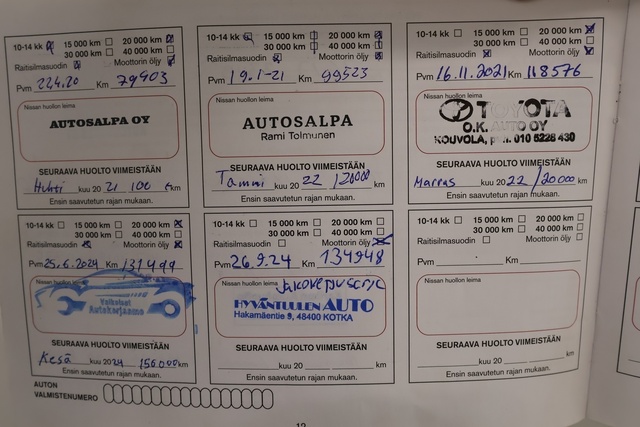 10-14 kk 15 000 km 20 000 km
30 000 km 40 000 km
Raitisilmasuodin Moottorin öljy
Pvm 22.4.20 Km 79403
Nissan huollon leima
AUTOSALPA OY
SEURAAVA HUOLTO VIIMEISTÄÄN
Huhti kuu 20 21 100 km
Ensin saavutetun rajan mukaan.
10-14 kk 15 000 km 20 000 km
30 000 km 40 000 km
Raitisilmasuodin Moottorin öljy
Pvm 19.1-21 Km 99523
Nissan huollon leima
AUTOSALPA
Rami Tolmunen
SEURAAVA HUOLTO VIIMEISTÄÄN
Tammi kuu 20 22 /20000 km
Ensin saavutetun rajan mukaan.
10-14 kk 15 000 km 20 000 km
30 000 km 40 000 km
Raitisilmasuodin Moottorin öljy
Pvm 16.11.2021 Km 118576
Nissan huollon leima
TOYOTA
O.K. AUTO OY
KOUVOLA, puh. 010 5228 430
SEURAAVA HUOLTO VIIMEISTÄÄN
Marras kuu 20 22 /20000 km
Ensin saavutetun rajan mukaan.
10-14 kk 15 000 km 20 000 km
30 000 km 40 000 km
Raitisilmasuodin Moottorin öljy
Pvm 25.6.2024 Km 131499
Nissan huollon leima
Autokorjaamo
SEURAAVA HUOLTO VIIMEISTÄÄN
Kesä kuu 20 150000 km
Ensin saavutetun rajan mukaan.
10-14 kk 15 000 km 20 000 km
30 000 km 40 000 km
Raitisilmasuodin Moottorin öljy
Pvm 26.9.24 Km 134948
Nissan huollon leima
HYVÄNTUULEN AUTO
Hakamäentie 9, 48400 KOTKA
SEURAAVA HUOLTO VIIMEISTÄÄN
kuu 20 km
Ensin saavutetun rajan mukaan.
10-14 kk 15 000 km 20 000 km
30 000 km 40 000 km
Raitisilmasuodin Moottorin öljy
Pvm Km
Nissan huollon leima
SEURAAVA HUOLTO VIIMEISTÄÄN
kuu 20 km
Ensin saavutetun rajan mukaan.
AUTON
VALMISTENUMERO